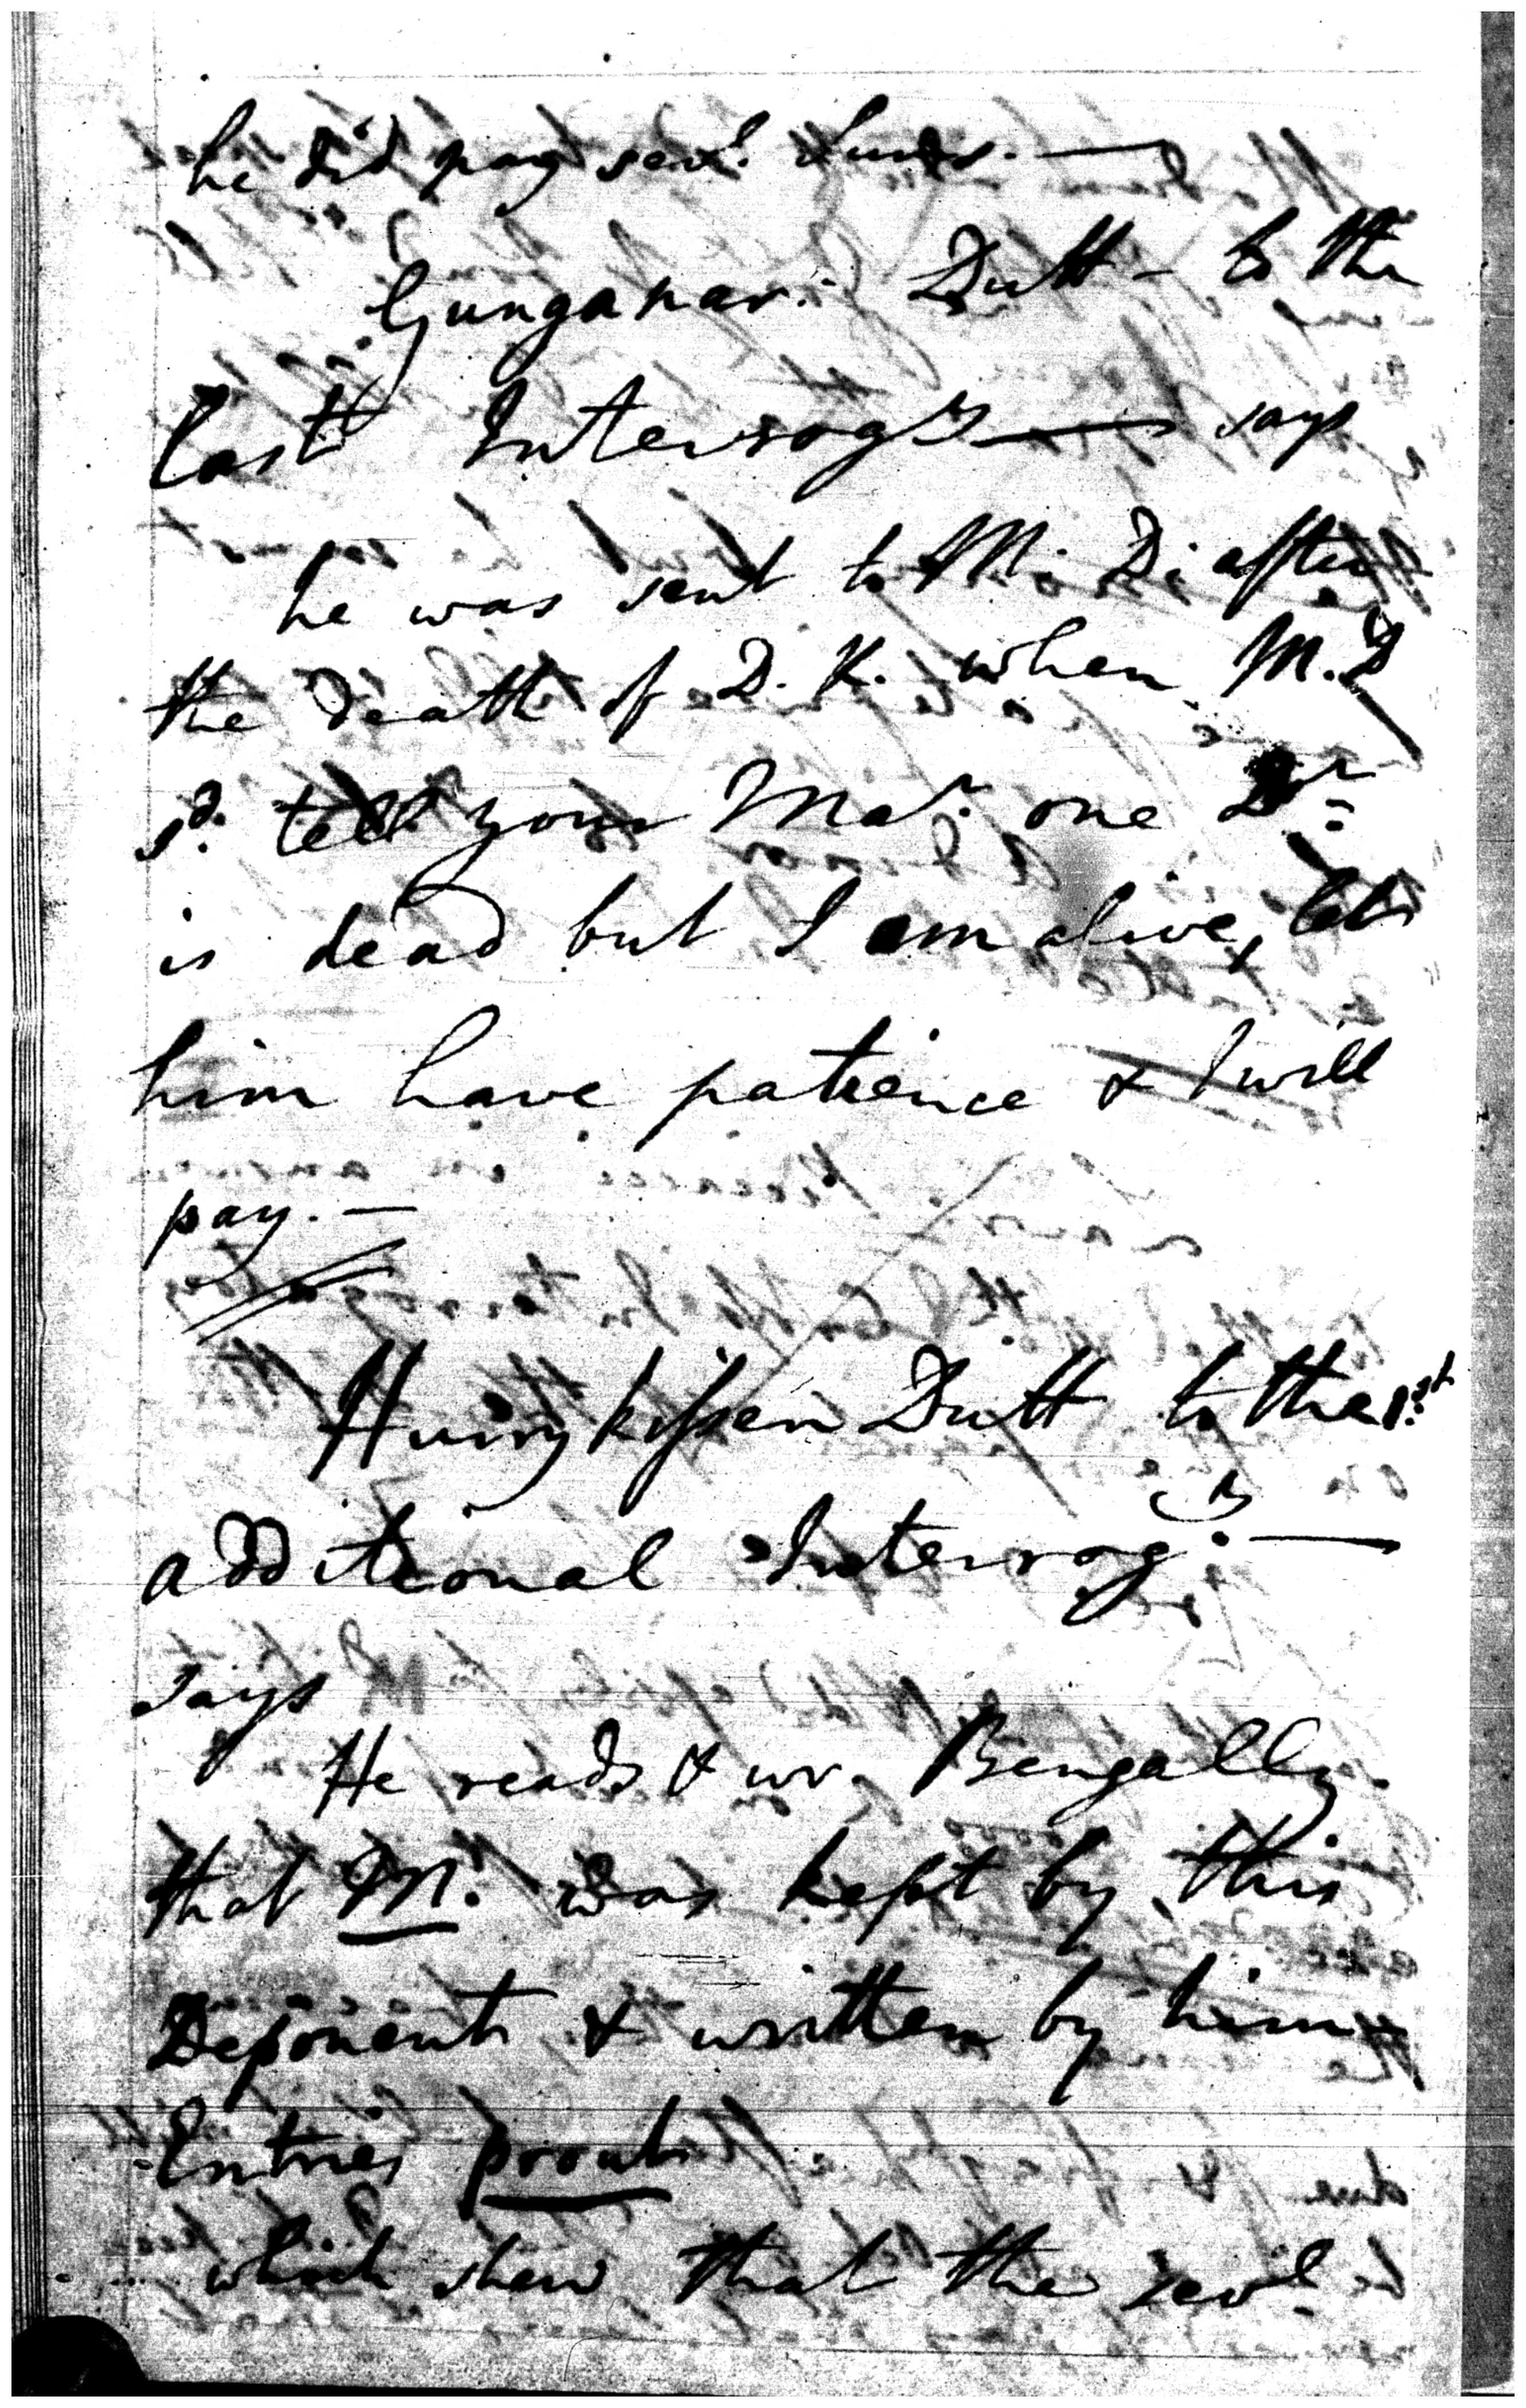 he did pay sev.l Sums. —
Gunganar: Dutt - to the
last Interrog.ry — says
he was sent to M: D: after
the death of D. K. when M. D
s.d. tell your Ma.r one Br:
is dead but I am alive, let
him have patience & I will
pay. —
Hurrykissen Dutt to the 1st
additional Interrog.ry —
says
He reads & wr. Bengally.
that M. was kept by this
Deponent & written by him
Entries prout
which shew that the sev.l